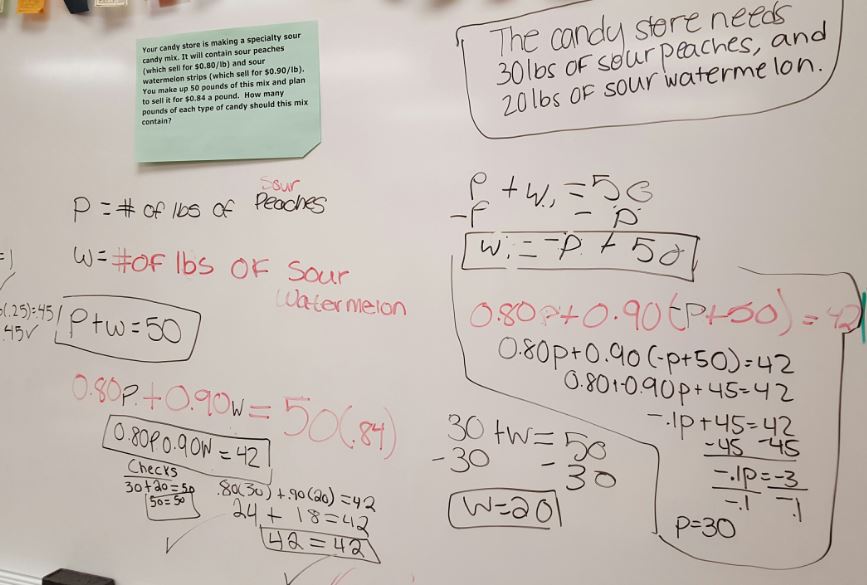 Your candy store is making a specialty sour
candy mix. It will contain sour peaches
(which sell for $0.80/lb) and sour
watermelon strips (which sell for $0.90/lb).
You make up 50 pounds of this mix and plan
to sell it for $0.84 a pound. How many
pounds of each type of candy should this mix
contain?
The candy store needs
30lbs of sour peaches, and
20lbs of sour watermelon.
Sour
P = # of lbs of Peaches
W= #of lbs of Sour
Watermelon
(.25)=.45
.45✓
P+w=50
0.80p+0.90w=50(.84)
0.80p0.90w=42
Checks
30+20=50
50=50
.80(30)+.90(20)=42
24+18=42
42=42
✓
✓
P+w=50
-P -P
w=-P+50
0.80p+0.90(-p+50)=42
0.80p+0.90(-p+50)=42
0.80+-0.90p+45=42
-.1p+45=42
-45 -45
-.1p=-3
-.1 -.1
p=30
30+w=50
-30 -30
W=20